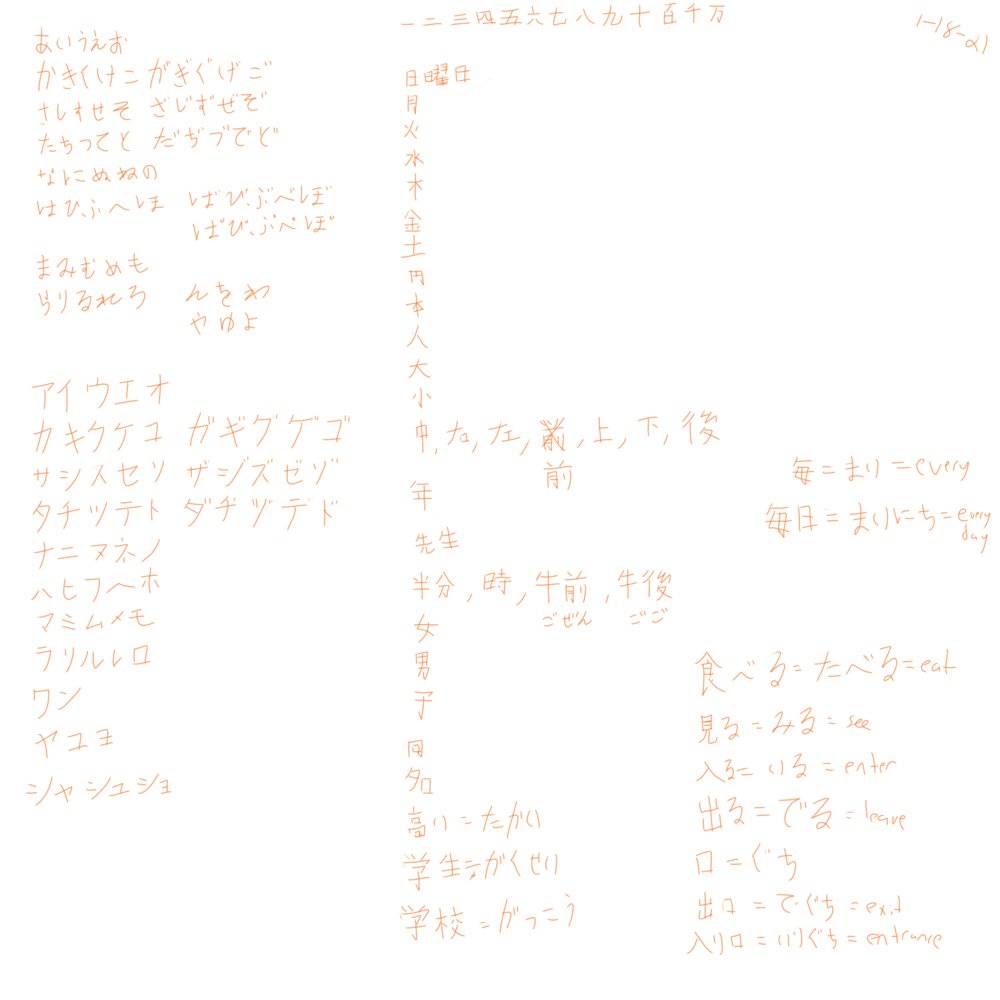 一二三四五六七八九十百千万
1-18-21
あいうえお
かきくけこ がぎぐげご
さしすせそ ざじずぜぞ
たちつてと だぢづでど
なにぬねの
はひふへほ ばびぶべぼ
ぱぴぷぺぽ
まみむめも
らりるれろ んをわ
やゆよ
アイウエオ
カキクケコ ガギグゲゴ
サシスセソ ザジズゼゾ
タチツテト ダヂヅデド
ナニヌネノ
ハヒフヘホ
マミムメモ
ラリルレロ
ワン
ヤユヨ
シャシュショ
日曜日
月
火
水
木
金
土
円
本
人
大
小
中,右,左,前,上,下,後
前
年
先生
半分,時,午前,午後
ごぜん ごご
女
男
子
同
名
高い=たかい
学生=がくせい
学校=がっこう
毎=まい=every
毎日=まいにち=every day
食べる=たべる=eat
見る=みる=see
入る=いる=enter
出る=でる=leave
口=ぐち
出口=でぐち=exit
入り口=いりぐち=entrance